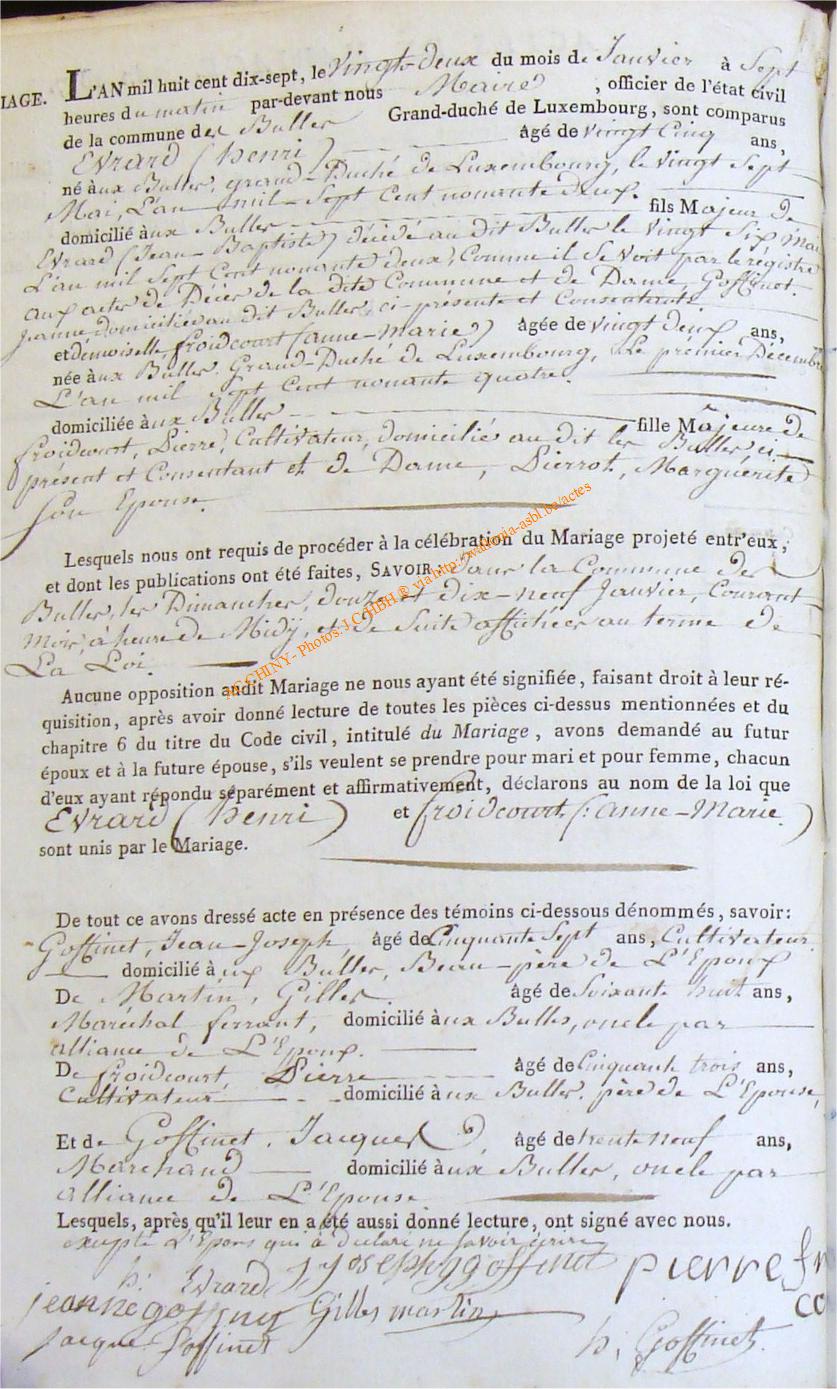 IAGE.
L'AN mil huit cent dix-sept, le vingt-deux du mois de Janvier à Sept
heures du matin par-devant nous Maire , officier de l'état civil
de la commune des Bulles Grand-duché de Luxembourg, sont comparus
Evrard (henri) âgé de vingt Cinq ans,
né aux Bulles, grand-Duché de Luxembourg, le vingt Sept
Mai, L'an mil Sept Cent nonante deux.
domicilié aux Bulles fils Majeur de
Evrard (Jean-Baptiste) décédé au dit Bulles le vingt Six Mai
L'an mil Sept Cent nonante deux, Comme il se voit par le registre
aux actes de Décès de la dite Commune et de Dame, Goffinet.
Jeanne domiciliée au dit Bulles, ci-présente et Consentante
et démoiselle froidcourt (anne-Marie) âgée de vingt deux ans,
née aux Bulles, Grand-Duché de Luxembourg, Le prémier Décembre
L'an mil Sept Cent nonante quatre.
domiciliée aux Bulles fille Majeure de
froidcourt, Pierre, Cultivateur, domicilié au dit les Bulles, ci-
présent et Consentant et de Dame, Pierrot, Marguérite
Son Epouse.
Lesquels nous ont requis de procéder à la célébration du Mariage projeté entr'eux,
et dont les publications ont été faites, SAVOIR : dans la Commune des
Bulles, les Dimanches, douze et dix-neuf Janvier, Courant
Mois, à heure de Midÿ, et de Suite affichées au terme de
La Loi.
AC CHINY - Photos: J.C. HBH ® via http://wallonia-asbl.be/actes
Aucune opposition audit Mariage ne nous ayant été signifiée, faisant droit à leur ré-
quisition, après avoir donné lecture de toutes les pièces ci-dessus mentionnées et du
chapitre 6 du titre du Code civil, intitulé du Mariage, avons demandé au futur
époux et à la future épouse, s'ils veulent se prendre pour mari et pour femme, chacun
d'eux ayant répondu séparément et affirmativement, déclarons au nom de la loi que
Evrard (henri) et froidcourt (: anne-Marie )
sont unis par le Mariage.
De tout ce avons dressé acte en présence des témoins ci-dessous dénommés, savoir:
Goffinet, Jean-Joseph, âgé de Cinquante Sept ans, Cultivateur.
domicilié aux Bulles, Beau-père de L'Epoux
De Martin, Gilles. âgé de Soixante huit ans,
Maréchal ferrant, domicilié aux Bulles, oncle par
alliance de L'Epoux.
De froidcourt, Pierre âgé de Cinquante trois ans,
Cultivateur domicilié aux Bulles. père de L'Epouse,
Et de Goffinet, Jacques âgé de trente neuf ans,
Marchand domicilié aux Bulles, oncle par
alliance de L'Epouse
Lesquels, après qu'il leur en a été aussi donné lecture, ont signé avec nous.
excepté L'Epous qui a déclaré ne savoir écrire
h. Evrard J joseph goffinet pierre fr
co
jeanne goffiny Gilles martin
jacque Goffinet h. Goffinet